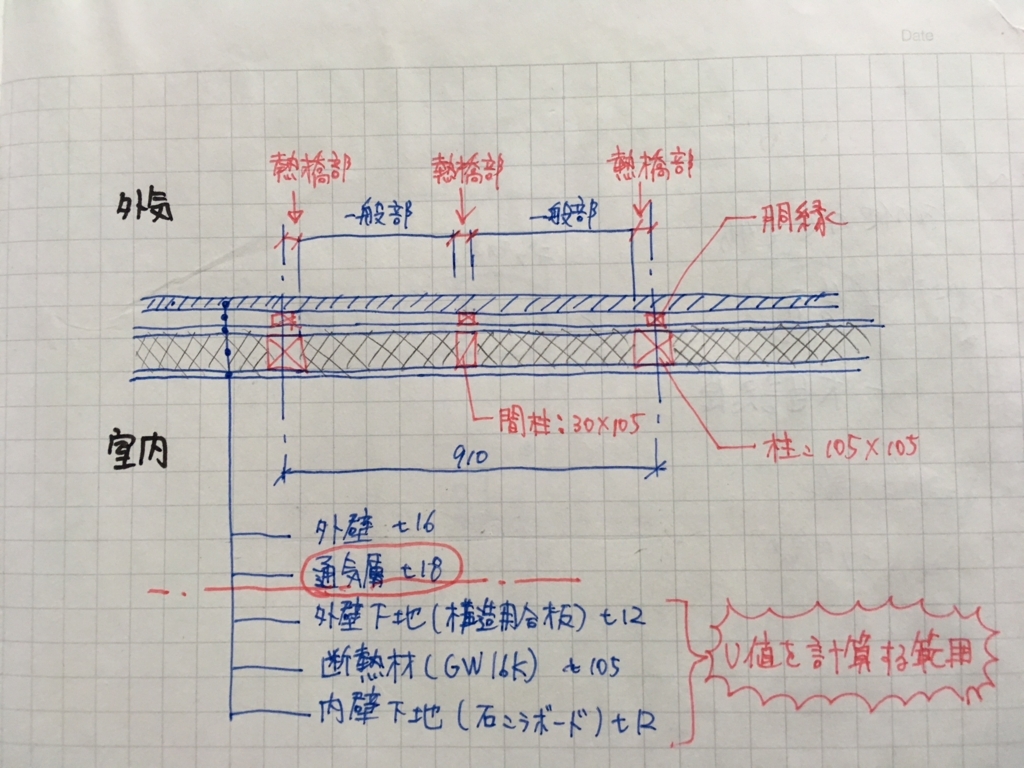 Date
熱橋部 熱橋部 熱橋部
外気 一般部 一般部 胴縁
間柱:30×105
室内 910 柱:105×105
外壁 t16
通気層 t18
外壁下地(構造用合板) t12
断熱材(GW16K) t105
内壁下地(石こうボード) t12
U値を計算する範囲